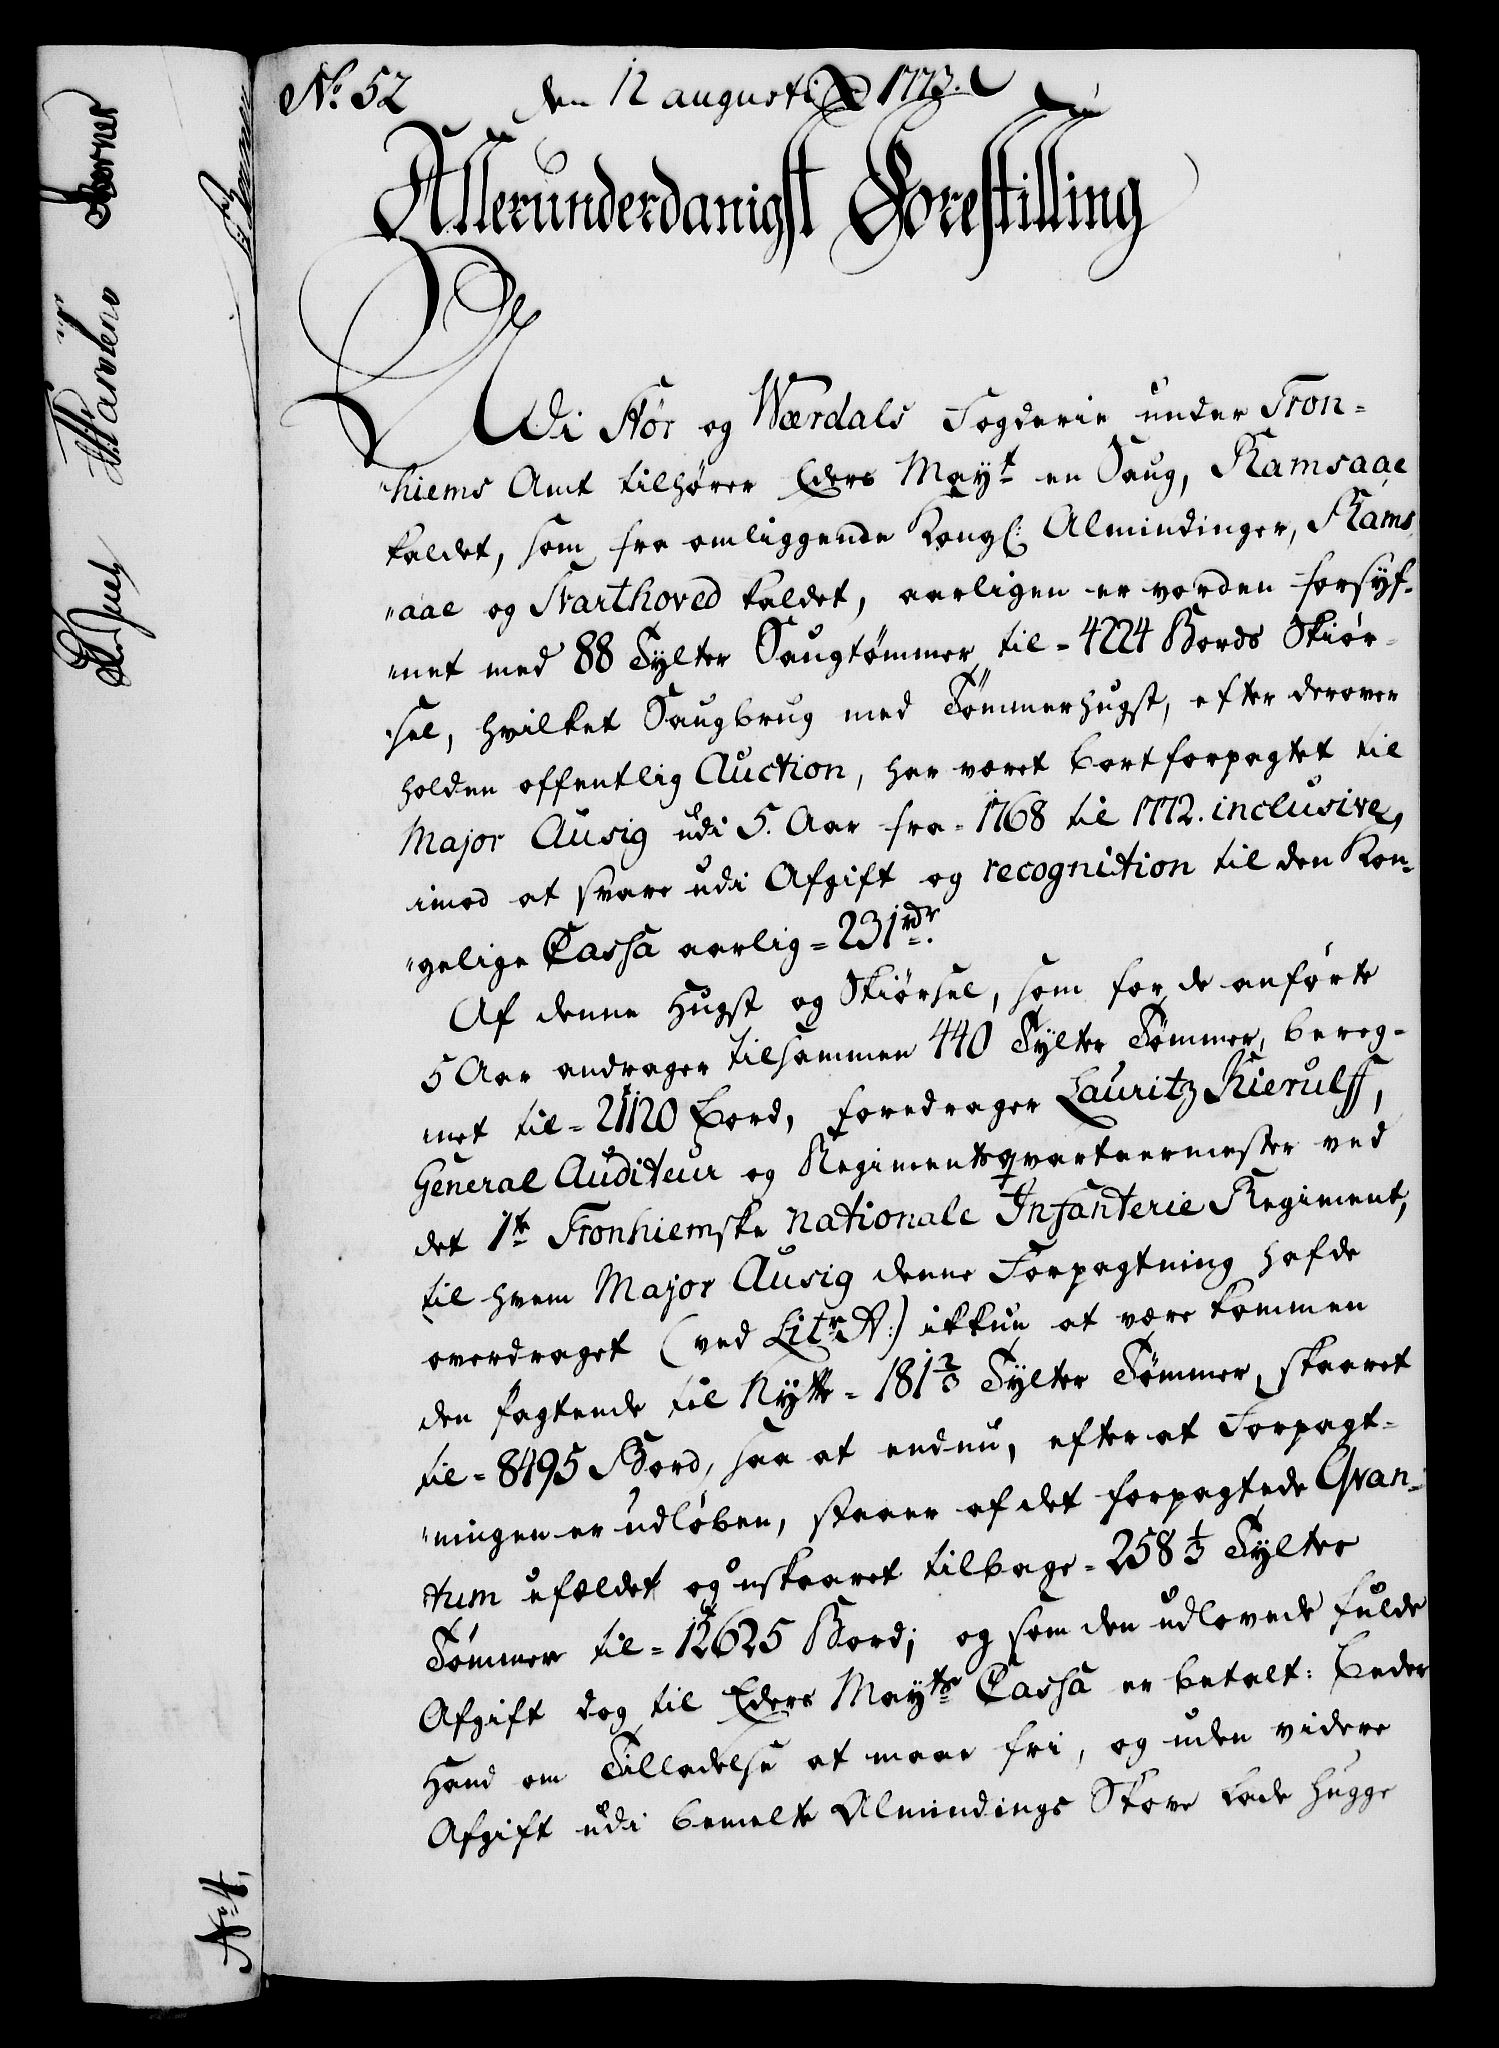 No. 52 den 12 augusti 1773.
Allerunderdanigst Forestilling
Udi Stør og Værdals Fogderie under Tron-
"hiems Amt tilhører Eders Mayt en Saug, Ramsaae
kaldet, som fra omliggende Kongl: Almindinger, Rams
"aae og Svarthoved kaldet, aarligen er vorden forsyf-
"net med 88 Tylter Saugtømmer til = 4224 Bords Skiør-
"sel, hvilket Saugbrug med Tømmerhugst, efter derover
holden offentlig Auction, har været bortforpagtet til
Major Ausig udi 5. Aar fra = 1768 til 1772. inclusive,
imod at svare udi Afgift og recognition til den Kon-
"gelige Cassa aarlig = 231 rdr.
Af denne Hugst og Skiørsel, som for de anførte
5 Aar andrager tilsammen 440 Tylter Tømmer, bereg-
net til = 21120 Bord, foredrager Lauritz Kierulff,
General Auditeur og Regimentsqvarteermester ved
det 1te Tronhiemske nationale Infanterie Regiment,
til hvem Major Ausig denne Forpagtning hafde
overdraget (ved Litr. A:) ikkun at være kommen
den fagtende til Nytte = 181 2/3 Tylter Tømmer, skaaret
til = 8495 Bord, saa at endnu, efter at Forpagt-
"ningen er udløben, staaer af det forpagtede Qvan-
tum ufældet og uskaaret tilbage = 258 1/3 Tylter
Tømmer til = 12625 Bord; og som den udlovede fulde
Afgift dog til Eders Mayts Cassa er betalt: Beder
Hand om Tilladelse at maae fri, og uden videre
Afgift udi bemelte Almindings Skove lade hugge
No. 4.